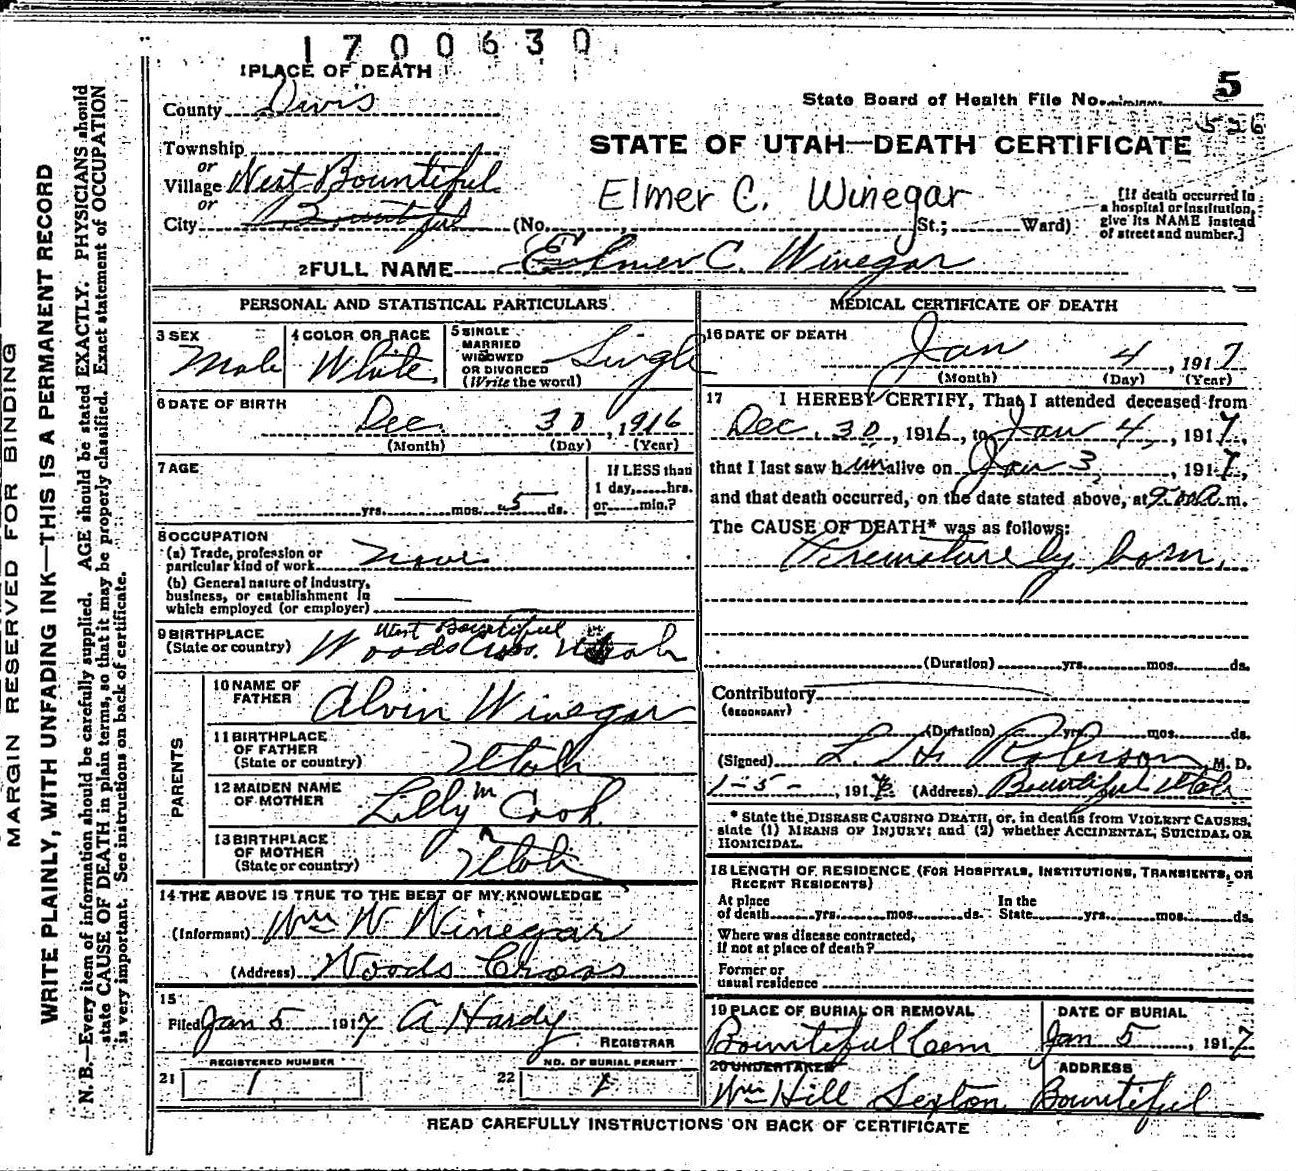 1700630
1 PLACE OF DEATH
County Davis
State Board of Health File No. 5
526
Township
or
Village West Bountiful
or
City Bountiful
STATE OF UTAH—DEATH CERTIFICATE
Elmer C. Winegar
(No. St.; Ward)
[If death occurred in
a hospital or institution,
give its NAME instead
of street and number.]
2 FULL NAME Elmer C. Winegar
PERSONAL AND STATISTICAL PARTICULARS
3 SEX
Male
4 COLOR OR RACE
White
5 SINGLE
MARRIED
WIDOWED
OR DIVORCED
(Write the word)
Single
6 DATE OF BIRTH
Dec. 30, 1916
(Month) (Day) (Year)
7 AGE
yrs. mos. 5 ds.
If LESS than
1 day, hrs.
or min.?
8 OCCUPATION
(a) Trade, profession or
particular kind of work None
(b) General nature of industry,
business, or establishment in
which employed (or employer)
9 BIRTHPLACE
(State or country)
West Bountiful
Woods Cross. Utah
PARENTS
10 NAME OF
FATHER Alvin Winegar
11 BIRTHPLACE
OF FATHER
(State or country) Utah
12 MAIDEN NAME
OF MOTHER Lilly M Cook
13 BIRTHPLACE
OF MOTHER
(State or country) Utah
14 THE ABOVE IS TRUE TO THE BEST OF MY KNOWLEDGE
(Informant) Wm W. Winegar
(Address) Woods Cross
15
Filed Jan 5 1917 A Hardy
REGISTRAR
REGISTERED NUMBER
21 1
NO. OF BURIAL PERMIT
22 1
MEDICAL CERTIFICATE OF DEATH
16 DATE OF DEATH
Jan 4, 1917
(Month) (Day) (Year)
17 I HEREBY CERTIFY, That I attended deceased from
Dec. 30, 1916, to Jan 4, 1917,
that I last saw him alive on Jan 3, 1917,
and that death occurred, on the date stated above, at A m.
The CAUSE OF DEATH* was as follows:
Prematurely born.
(Duration) yrs. mos. ds.
Contributory
(SECONDARY)
(Duration) yrs. mos. ds.
(Signed) L. H. Roberson, M. D.
1-5-, 191 (Address) Bountiful Utah
* State the DISEASE CAUSING DEATH, or, in deaths from VIOLENT CAUSES,
state (1) MEANS OF INJURY; and (2) whether ACCIDENTAL, SUICIDAL OR
HOMICIDAL.
18 LENGTH OF RESIDENCE (FOR HOSPITALS, INSTITUTIONS, TRANSIENTS, OR
RECENT RESIDENTS)
At place
of death yrs. mos. ds.
In the
State yrs. mos. ds.
Where was disease contracted,
if not at place of death?
Former or
usual residence
19 PLACE OF BURIAL OR REMOVAL
Bountiful Cem
DATE OF BURIAL
Jan 5, 1917
20 UNDERTAKER
Wm Hill Sexton
ADDRESS
Bountiful
READ CAREFULLY INSTRUCTIONS ON BACK OF CERTIFICATE
MARGIN RESERVED FOR BINDING
WRITE PLAINLY, WITH UNFADING INK—THIS IS A PERMANENT RECORD
N. B.—Every item of information should be carefully supplied. AGE should be stated EXACTLY. PHYSICIANS should
state CAUSE OF DEATH in plain terms, so that it may be properly classified. Exact statement of OCCUPATION
is very important. See instructions on back of certificate.